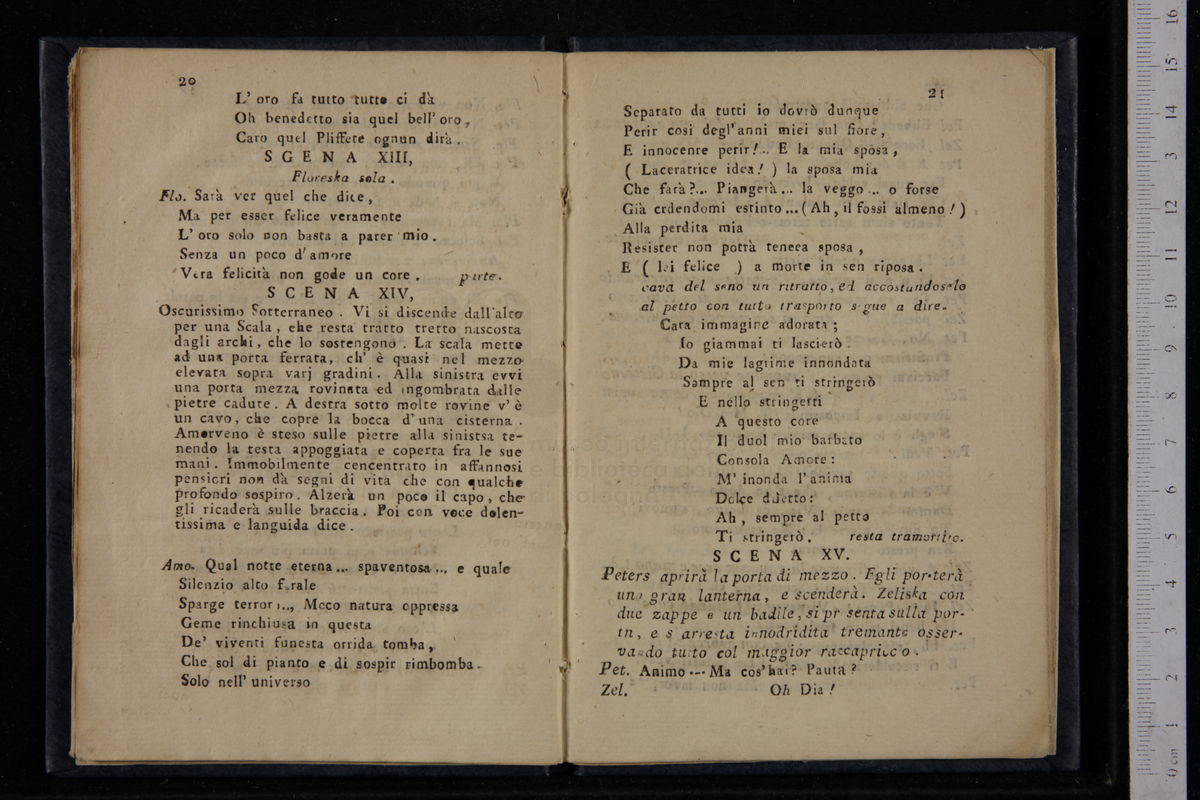 20
L' oro fa tutto tutto ci dà
Oh benedetto sia quel bell' oro,
Caro quel Pliffete ognun dirà.
SGENA XIII,
Floreska sola.
Flo. Sarà ver quel che dite,
Ma per esser felice veramente
L' oro solo non basta a parer mio.
Senza un poco d'amore
Vera felicità non gode un core. parte.
SCENA XIV,
Oscurissimo Sotterraneo. Vi si discende dall'alto
per una Scala, che resta tratto tretto nascosta
dagli archi, che lo sostengono. La scala mette
ad una porta ferrata, ch' è quasi nel mezzo
elevata sopra varj gradini. Alla sinistra evvi
una porta mezza rovinata ed ingombrata dalle
pietre cadute. A destra sotto molte rovine v' è
un cavo, che copre la bocca d'una cisterna.
Amorveno è steso sulle pietre alla sinistsa te-
nendo la testa appoggiata e coperta fra le sue
mani. Immobilmente cencentrato in affannosi
pensieri non dà segni di vita che con qualche
profondo sospiro. Alzerà un poco il capo, che
gli ricaderà sulle braccia. Poi con voce dolen-
tissima e languida dice.
Amo. Qual notte eterna... spaventosa... e quale
Silenzio alto ferale
Sparge terrori..., Meco natura oppressa
Geme rinchiusa in questa
De' viventi funesta orrida tomba,
Che sol di pianto e di sospir rimbomba.
Solo nell' universo
21
Separato da tutti io dovrò dunque
Perir cosi degl'anni miei sul fiore,
E innocenre perir!.. E la mia sposa,
( Laceratrice idea! ) la sposa mia
Che farà?... Piangerà... la veggo... o forse
Già crdendomi estinto... ( Ah, il fossi almeno! )
Alla perdita mia
Resister non potrà teneea sposa,
E ( lei felice ) a morte in sen riposa.
cava del seno un ritratto, ed accostandoselo
al petto con tutto trasporto segue a dire.
Cara immagine adorata;
Io giammai ti lascierò.
Da mie lagrime innondata
Sempre al sen ti stringerò
E nello stringerti
A questo core
Il duol mio barbato
Consola Amore:
M' inonda l'anima
Dolce diletto:
Ah, sempre al petto
Ti stringerò. resta tramortito.
SCENA XV.
Peters aprirà la porta di mezzo. Egli porterà
una gran lanterna, e scenderà. Zeliska con
due zappe e un badile, si presenta sulla por-
ta, e s'arresta innodridita tremante osser-
vando tutto col maggior raccapriccio.
Pet. Animo --- Ma cos' hai? Pauta?
Zel. Oh Dia!